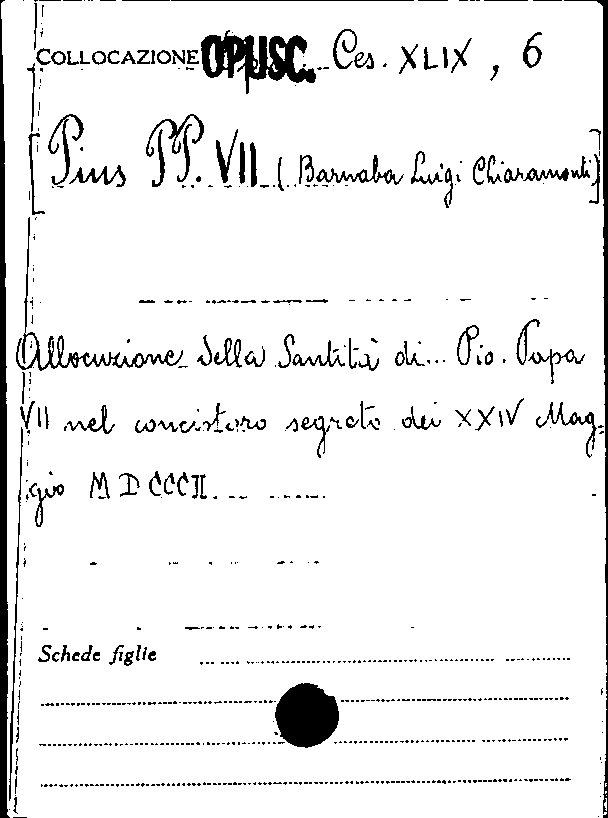 COLLOCAZIONE OPUSC. Ces. XLIX, 6
[Pius PP. VII (Barnaba Luigi Chiaramonti)]
Allocuzione della Santità di... Pio. Papa
VII nel concistoro segreto dei XXIV Mag-
gio MDCCCII
Schede figlie